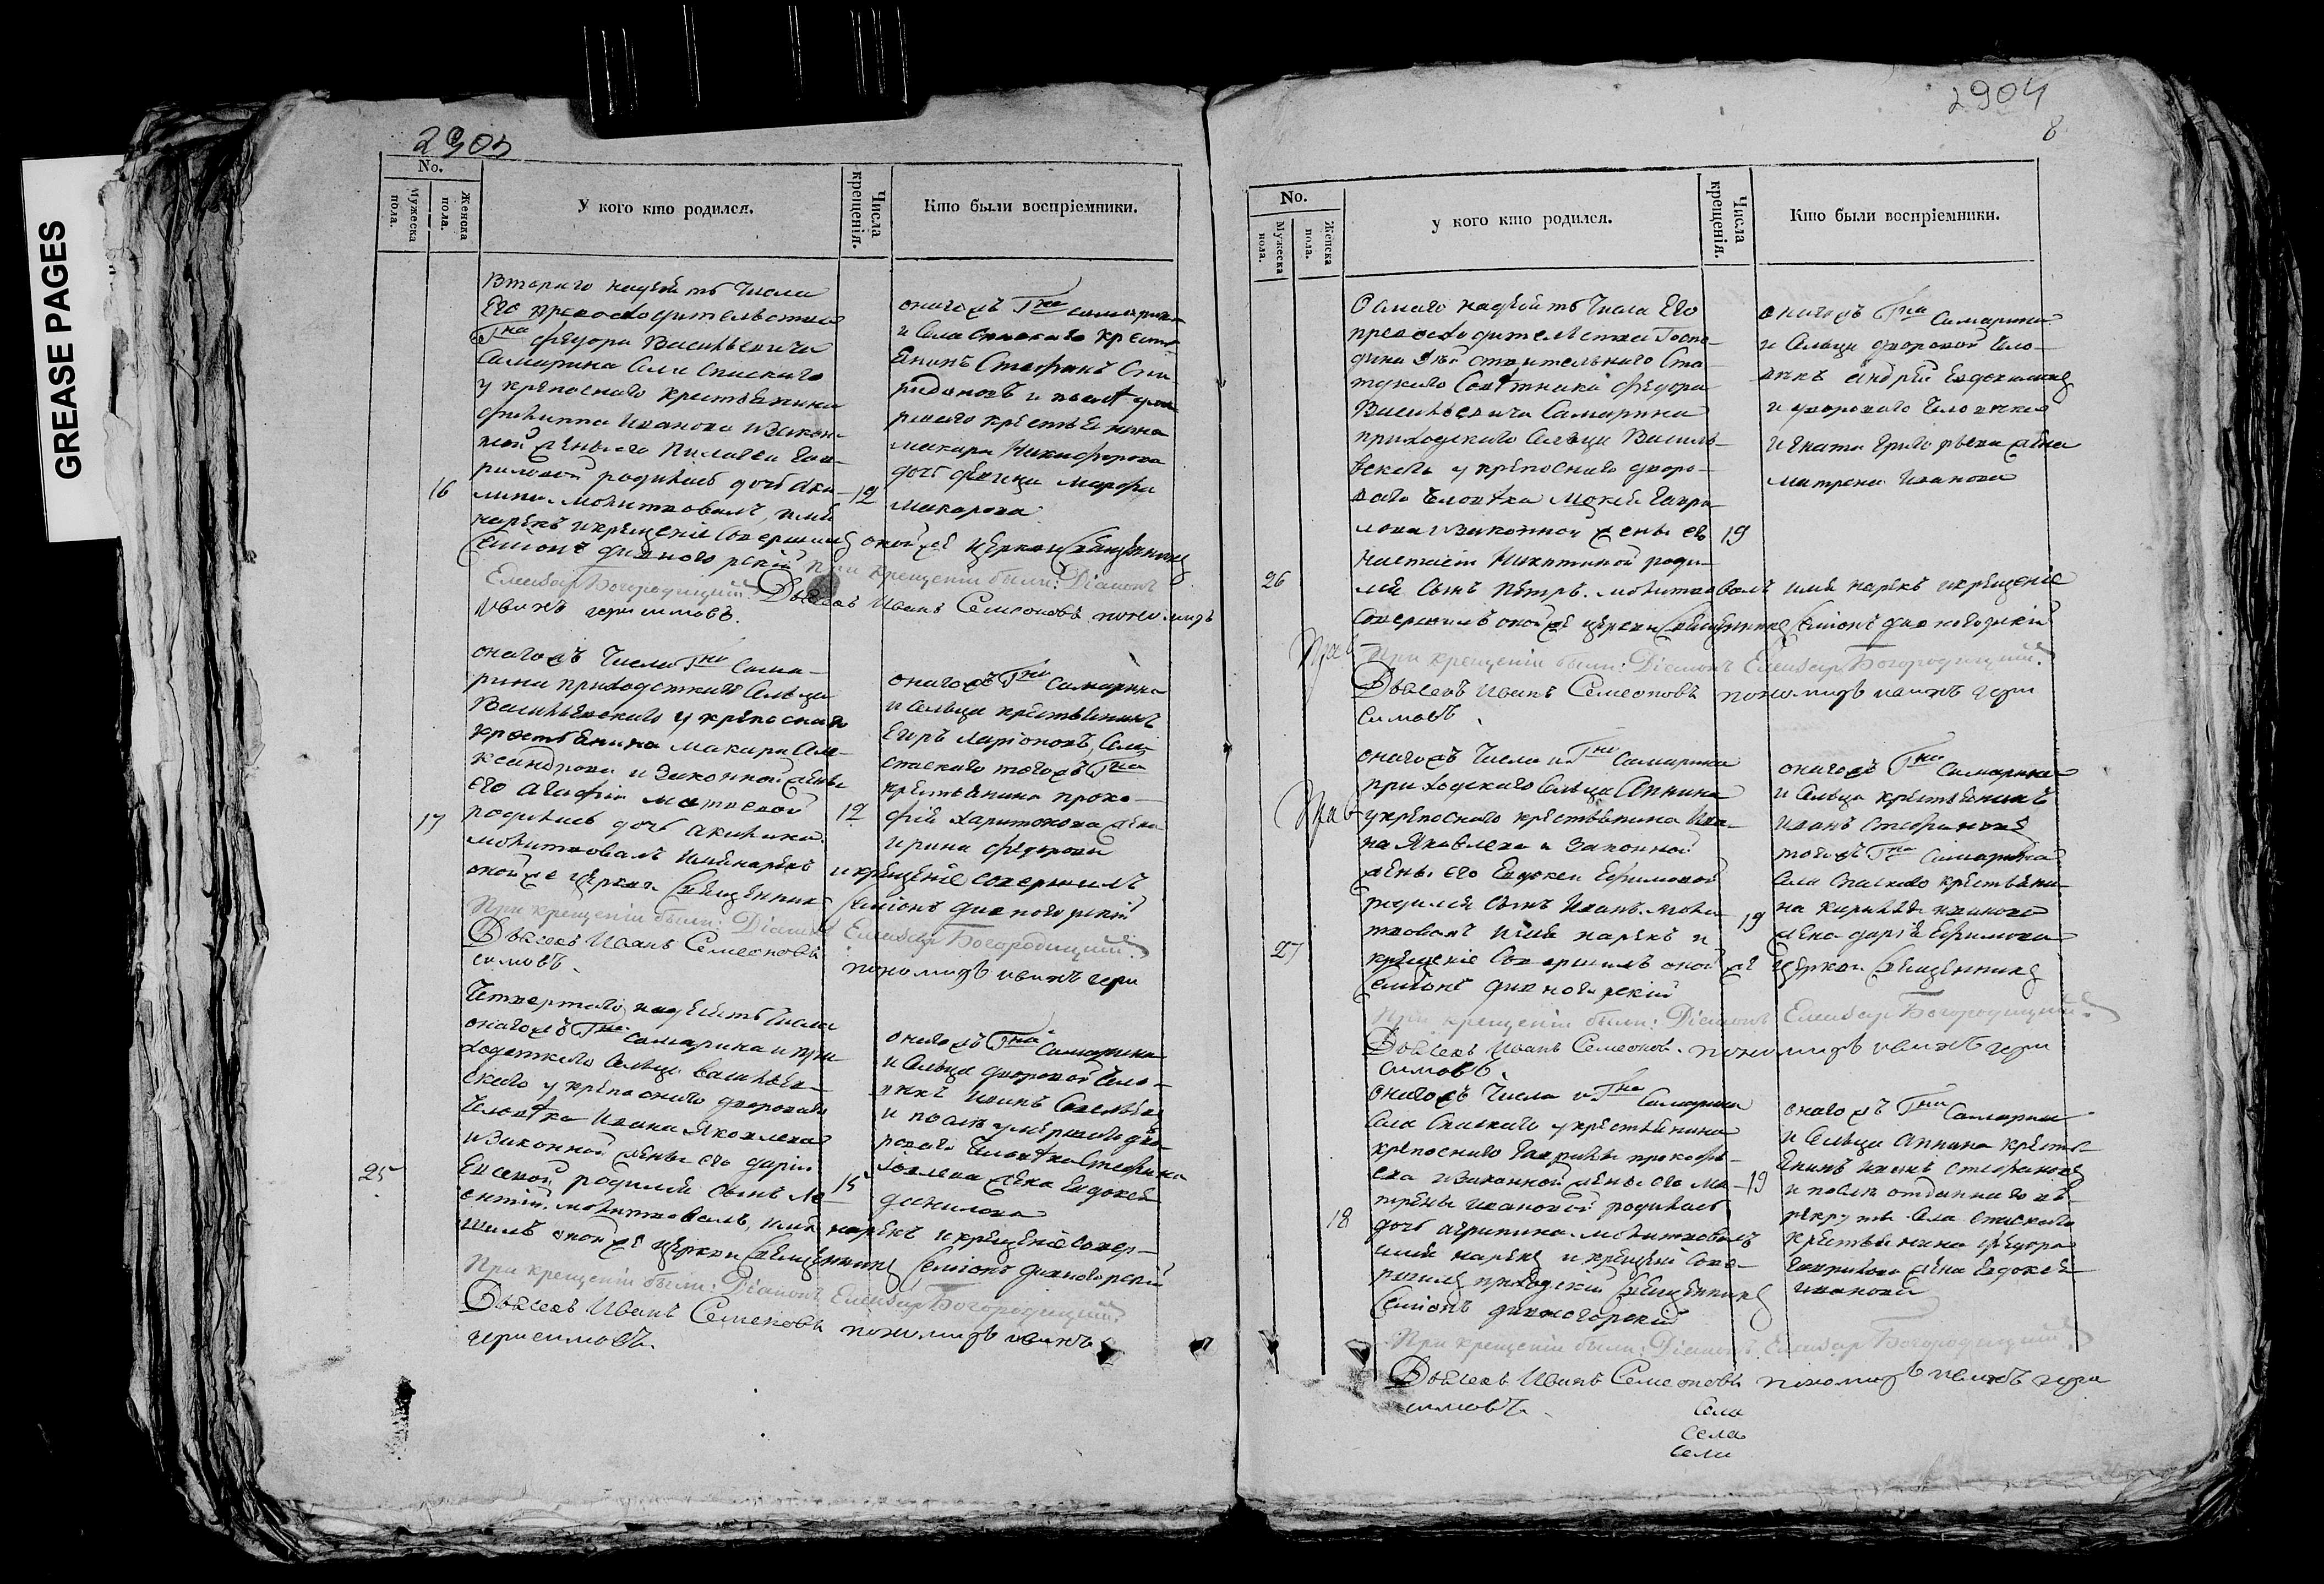 GREASE PAGES
2903
No.
Мужеска пола.
Женска пола.
У кого кто родился.
Числа крещенія.
Кто были воспріемники.
Втораго надесять Числа
Его превосходительства
Гна Федора Васильевича
Самарина Села Спаскаго
у крѣпоснаго крестьянина
Филиппа Иванова изакон-
ной жены его Гав-
риловой родилась дочь Аку-
16
лина. молитвовалъ, имя
нарекъ икрещеніе совершилъ оной же церкви Священникъ
Симіонъ Дивногорскій
12
оногожъ Гна Самарина
и Села Спаскаго кресть
янинъ Стефанъ Спи-
ридоновъ и
крестьянина
макара Никифорова
дочь девица марфа
макарова
При крещеніи были: Діаконъ
Елеазар Богородицкий. Дьячекъ Иванъ Семеоновъ пономарь
иванъ герасимовъ.
оногожъ Числа Гна Сама-
рина приходскаго Сельца
Васильевскаго у крѣпоснаго
крестьянина макара Але-
ксандрова и Законной жены
его агафіи
17
родилась дочь акилина.
молитвовалъ имя нарекъ и крещеніе совершилъ
оной же церкви Священникъ Симіонъ Дивногорскій
12
оногожъ Гна Самарина
и Сельца крестьянинъ
Егоръ Ларіоновъ, Села
спаскаго тогожъ Гна
крестьянина проко-
фія Харитонова жена
ирина федорова
При крещеніи были: Діаконъ Елеазар Богородицкий.
Дьячекъ Иванъ Семеоновъ пономарь иванъ гера
симовъ.
Четвертаго надесять Числа
оногожъ Гна Самарина и при
ходскаго Сельца Васильев-
скаго у крѣпоснаго двороваго
Человѣка Ивана Яковлева
изаконной жены его даріи
25
родился сынъ Ле
онтій. молитвовалъ, имя нарекъ икрещеніе совер-
шилъ оной же церкви Священникъ Симіонъ Дивногорскій
15
оногожъ Гна Самарина
и Сельца дворовой Чело-
векъ иванъ Савельевъ
и послѣ умершаго дво-
роваго Человѣка Стефана
жена Евдокея
данилова
При крещеніи были: Діаконъ Елеазар Богородицкий.
Дьячекъ Иванъ Семеновъ пономарь иванъ
герасимовъ.
2904
8
No.
Мужеска пола.
Женска пола.
У кого кто родился.
Числа крещенія.
Кто были воспріемники.
Осмаго надесять Числа Его
превосходительства Госпо-
дина действительнаго Ста-
тскаго Советника Федора
Васильевича Самарина
приходскаго Сельца Василь-
евскаго у крѣпоснаго дворо-
ваго Человѣка Мокея Гаври-
лова изаконной жены его
Настасіи Никитиной роди-
26
лся Сынъ Петръ. молитвовалъ имя нарекъ икрещеніе
совершилъ оной же церкви Священникъ Симіонъ Дивногорскій
19
оногожъ Гна Самарина
и Сельца дворовой Чело-
векъ Андрей Евдокимовъ
и двороваго Человека
игната Григорьева жена
матрена Иванова
При крещеніи были: Діаконъ Елеазар Богородицкий.
Дьячекъ Иванъ Семеоновъ пономарь иванъ гера
симовъ.
оногожъ Числа и Гна Самарина
приходскаго Сельца Аннина
укрѣпоснаго крестьянина Ива-
на Яковлева и Законной
жены его Евдокеи Ефимовой
родился Сынъ Иванъ. моли-
твовалъ имя нарекъ и
27
крещеніе Совершилъ оной же церкви Священникъ
Симіонъ Дивногорскій
19
оногожъ Гна Самарина
и Сельца крестьянинъ
иванъ Стефановъ
тогожъ Гна Самарина
Села Спаскаго крестьяни-
на Кирилы иванова
жена дарія Ефимова
При крещеніи были: Діаконъ Елеазар Богородицкий.
Дьячекъ Иванъ Семеонов. пономарь иванъ гера
симовъ.
оногожъ Числа и Гна Самарина
Села Спаскаго укрестьянина
крѣпоснаго Гаврилы прокофь-
ева изаконной жены его Ма-
трены ивановой родилась
18
дочь агрипина. молитвовалъ
имя нарекъ и крещеніе сове-
ршилъ приходскій Священникъ
Симіонъ дивногорскій
19
оногожъ Гна Самарина
и Сельца Аннина кресть-
янинъ иванъ Стефановъ
и послѣ отданнаго въ
рекруты Села Спаскаго
крестьянина федора
Гаврилова жена Евдокея
иванова
При крещеніи были: Діаконъ Елеазар Богородицкий.
Дьячекъ Иванъ Семеоновъ пономарь иванъ гера
симовъ.
Села
Села
Села